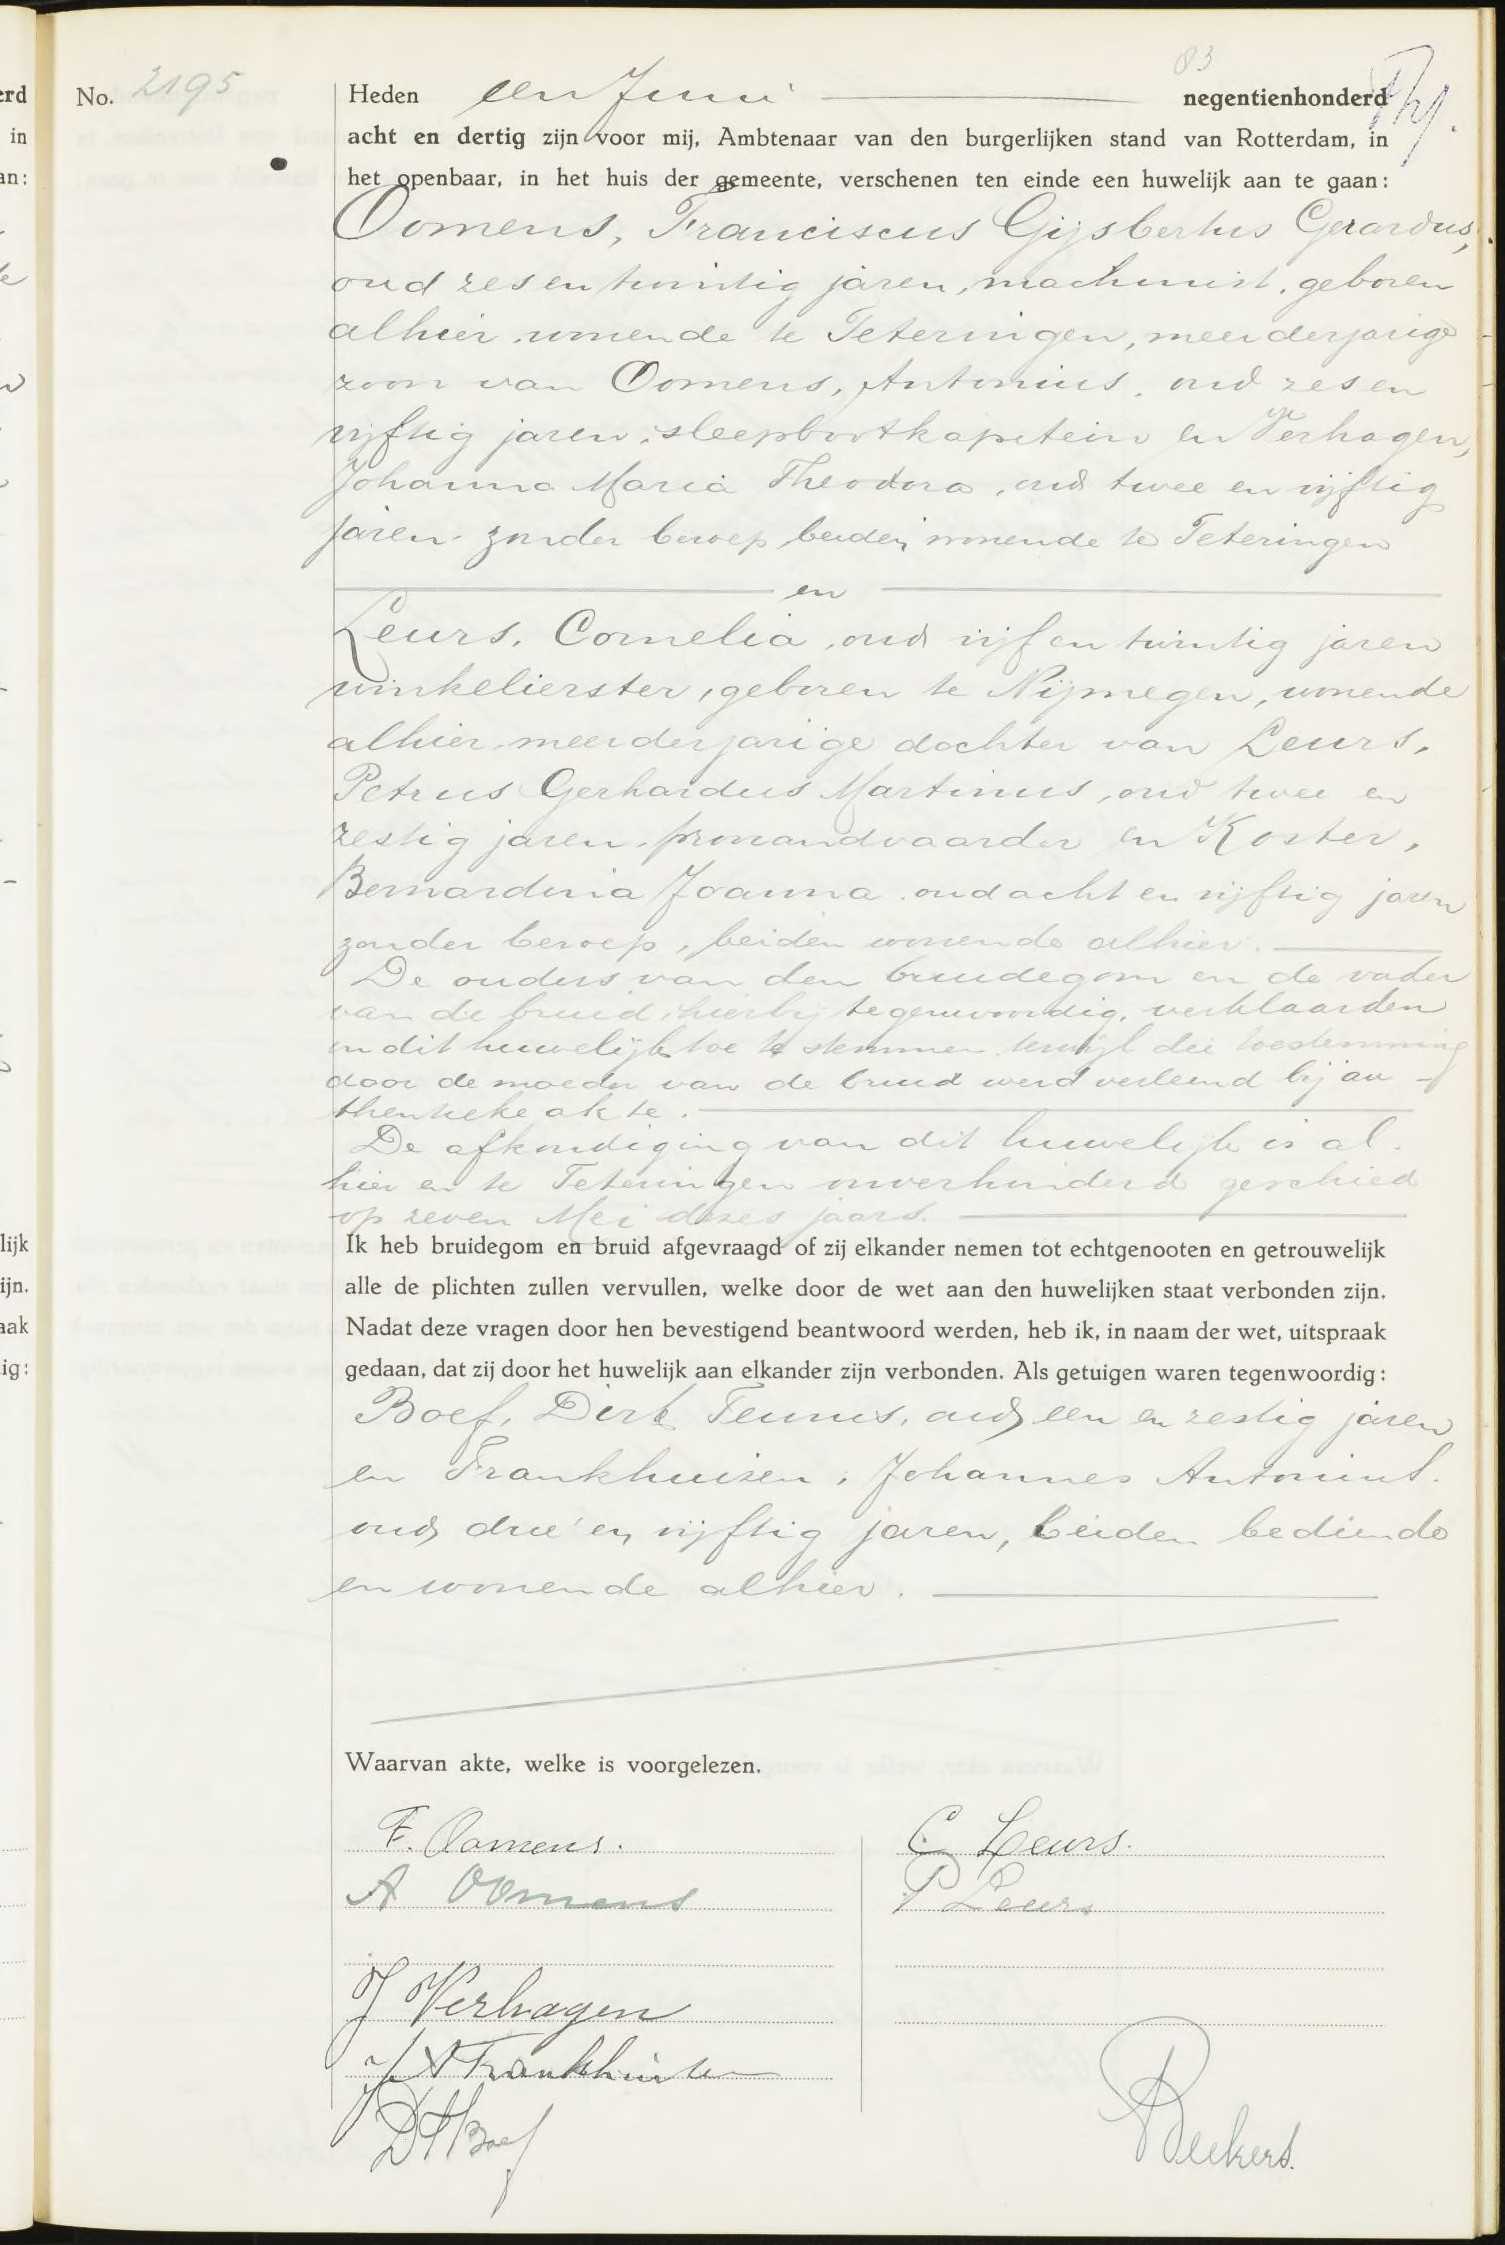 83
No. 2195
Heden een Juni negentienhonderd
acht en dertig zijn voor mij, Ambtenaar van den burgerlijken stand van Rotterdam, in
het openbaar, in het huis der gemeente, verschenen ten einde een huwelijk aan te gaan:
Oomens, Franciscus Gijsbertus Gerardus,
oud zes en twintig jaren, machinist, geboren
alhier, wonende te Teteringen, meerderjarige
zoon van Oomens, Antonius, oud zes en
vijftig jaren, sleepbootkapitein en Verhagen,
Johanna Maria Theodora, oud twee en vijftig
jaren, zonder beroep, beiden wonende te Teteringen
en
Leurs, Cornelia, oud vijf en twintig jaren
winkelierster, geboren te Nijmegen, wonende
alhier, meerderjarige dochter van Leurs,
Petrus Gerhardus Martinus, oud twee en
zestig jaren, en Koster,
Bernardina Joanna, oud acht en vijftig jaren
zonder beroep, beiden wonende alhier.
De ouders van den bruidegom en de vader
van de bruid, hierbij tegenwoordig, verklaarden
in dit huwelijk toe te stemmen terwijl die toestemming
door de moeder van de bruid werd verleend bij au
thentieke akte.
De afkondiging van dit huwelijk is al
hier en te Teteringen onverhinderd geschied
op zeven Mei dezes jaars.
Ik heb bruidegom en bruid afgevraagd of zij elkander nemen tot echtgenooten en getrouwelijk
alle de plichten zullen vervullen, welke door de wet aan den huwelijken staat verbonden zijn.
Nadat deze vragen door hen bevestigend beantwoord werden, heb ik, in naam der wet, uitspraak
gedaan, dat zij door het huwelijk aan elkander zijn verbonden. Als getuigen waren tegenwoordig:
Boef, Dirk Teunis, oud een en zestig jaren
en Frankhuizen, Johannes Antonius,
oud drie en vijftig jaren, beiden bediende
en wonende alhier.
Waarvan akte, welke is voorgelezen.
F. Oomens. C. Leurs.
A Oomens P Leurs
J Verhagen
J A Frankhuizen
D T Boef